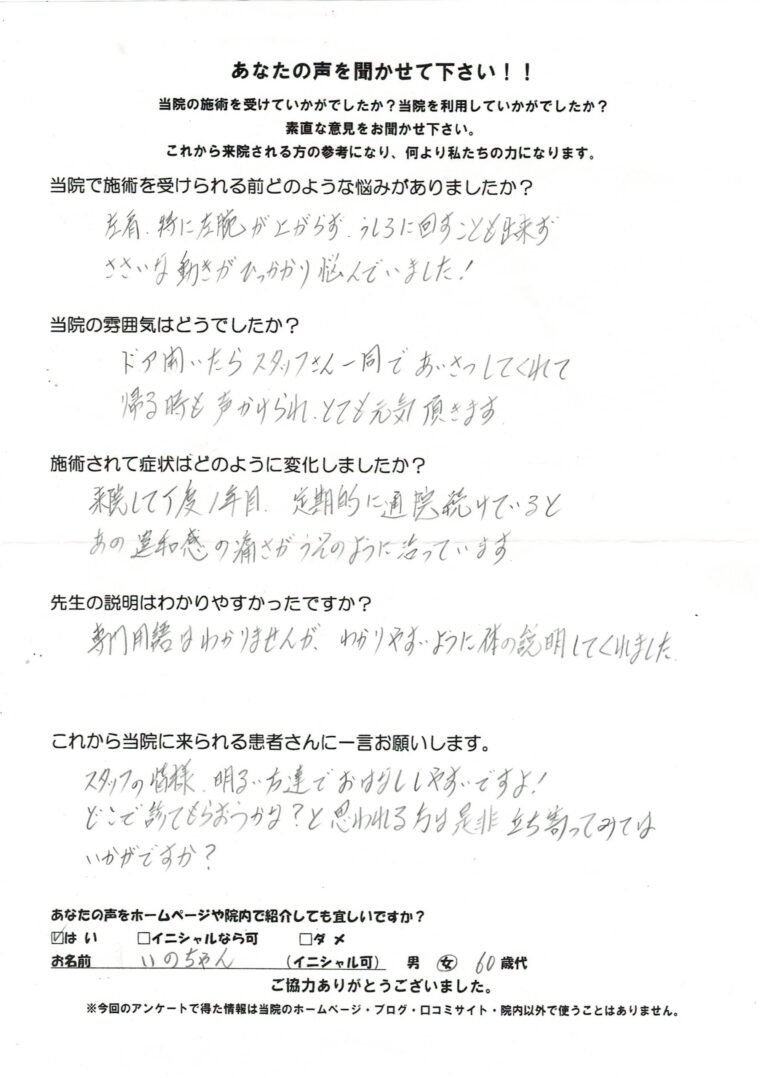 あなたの声を聞かせて下さい！！
当院の施術を受けていかがでしたか？当院を利用していかがでしたか？
素直な意見をお聞かせ下さい。
これから来院される方の参考になり、何より私たちの力になります。
当院で施術を受けられる前どのような悩みがありましたか？
左肩、特に左腕が上がらず、うしろに回すことも出来ず
ささいな動きがひっかかり悩んでいました！
当院の雰囲気はどうでしたか？
ドア開いたらスタッフさん一同であいさつしてくれて
帰る時も声かけられ、とても元気頂きます
施術されて症状はどのように変化しましたか？
来院して丁度1年目、定期的に通院続けていると
あの違和感の痛さがうそのように治っています
先生の説明はわかりやすかったですか？
専門用語はわかりませんが、わかりやすいように体の説明してくれました
これから当院に来られる患者さんに一言お願いします。
スタッフの皆様、明るい方達でおはなししやすいですよ！
どこで診てもらおうかな？と思われる方は是非立ち寄ってみては
いかがですか？
あなたの声をホームページや院内で紹介しても宜しいですか？
☑はい □イニシャルなら可 □ダメ
お名前 いのちゃん （イニシャル可） 男 女 60歳代
ご協力ありがとうございました。
※今回のアンケートで得た情報は当院のホームページ・ブログ・口コミサイト・院内以外で使うことはありません。